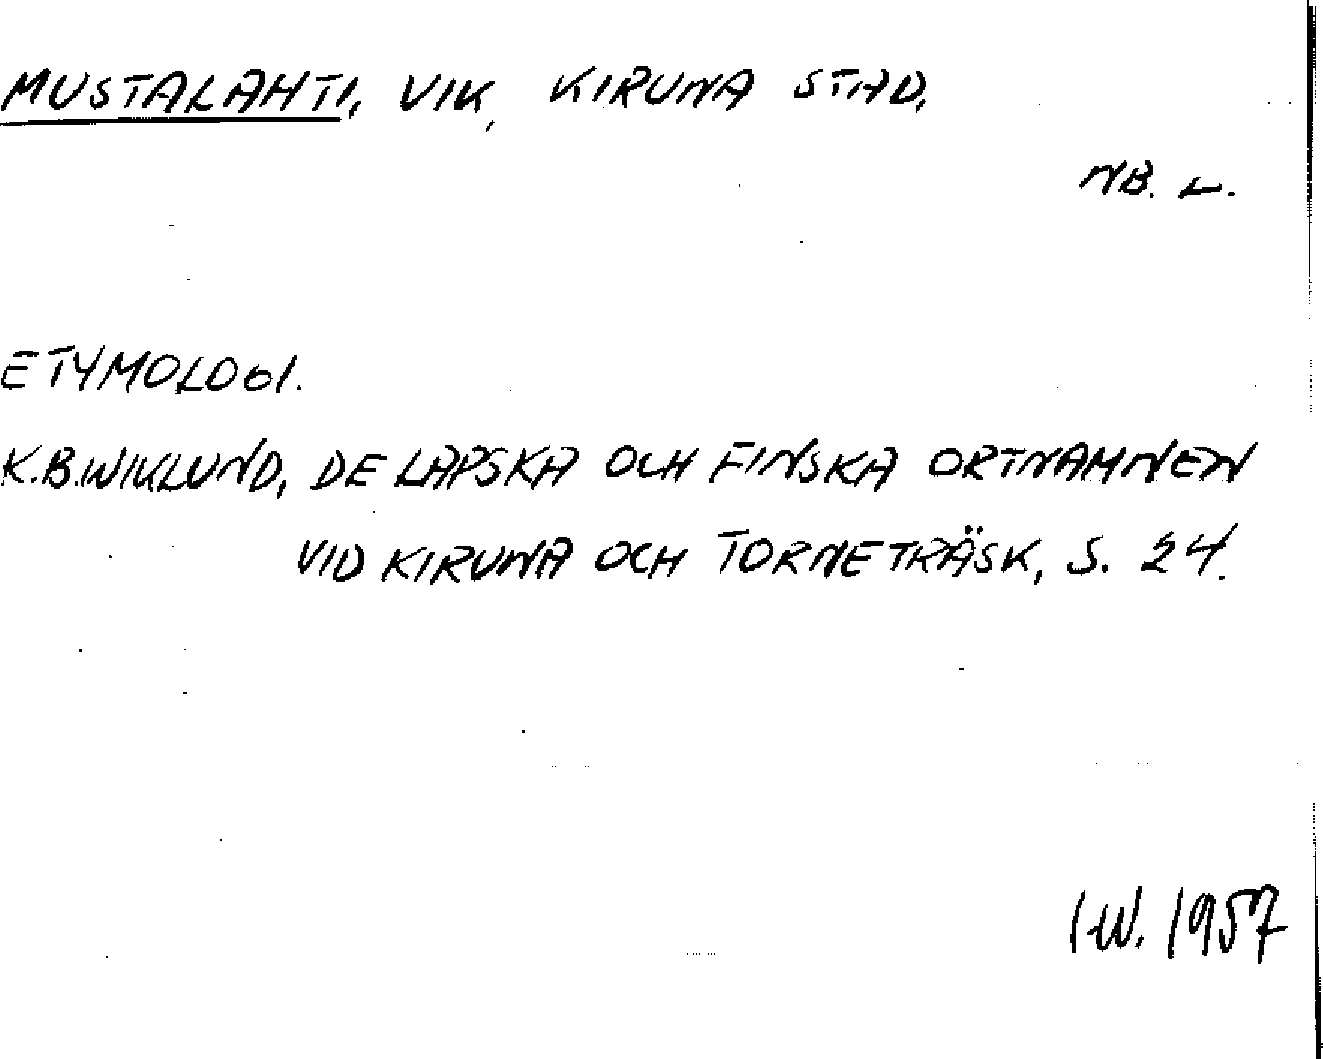 MUSTALAHTI, VIK, KIRUNA STAD,
NB. L.
ETYMOLOGI.
K.B. WIKLUND, DE LAPSKA OCH FINSKA ORTNAMNEN
VID KIRUNA OCH TORNETRÄSK, S. 24.
I.W. 1957